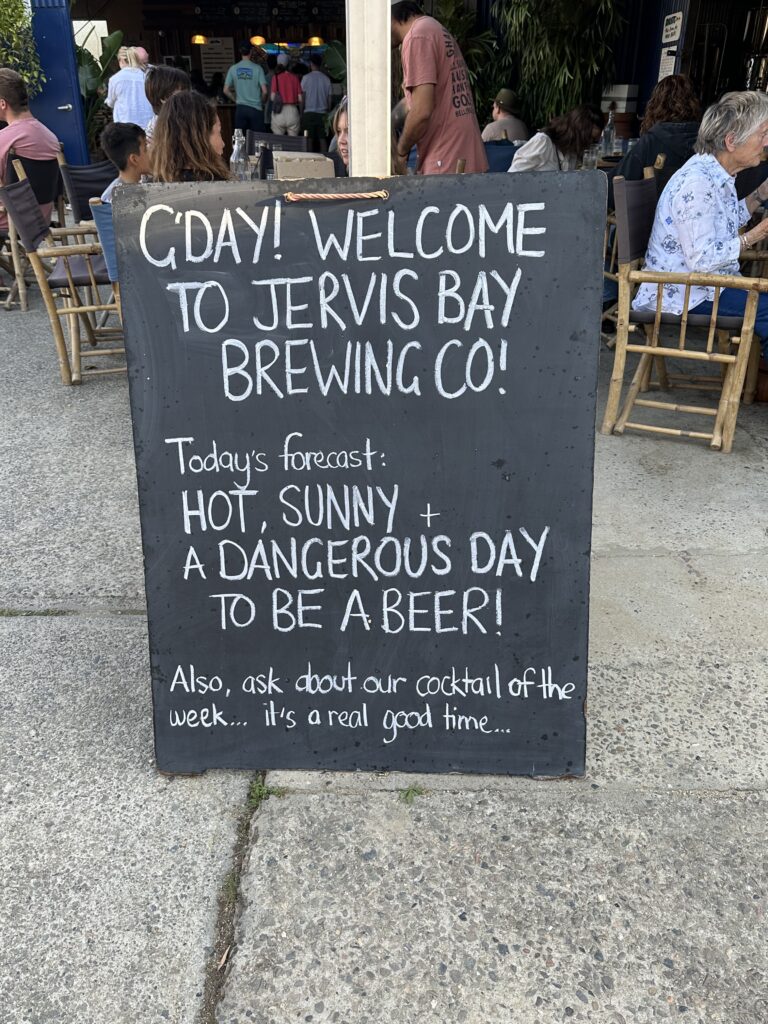 G'DAY! WELCOME
TO JERVIS BAY
BREWING CO!
Today's forecast:
HOT, SUNNY +
A DANGEROUS DAY
TO BE A BEER!
Also, ask about our cocktail of the
week... it's a real good time...